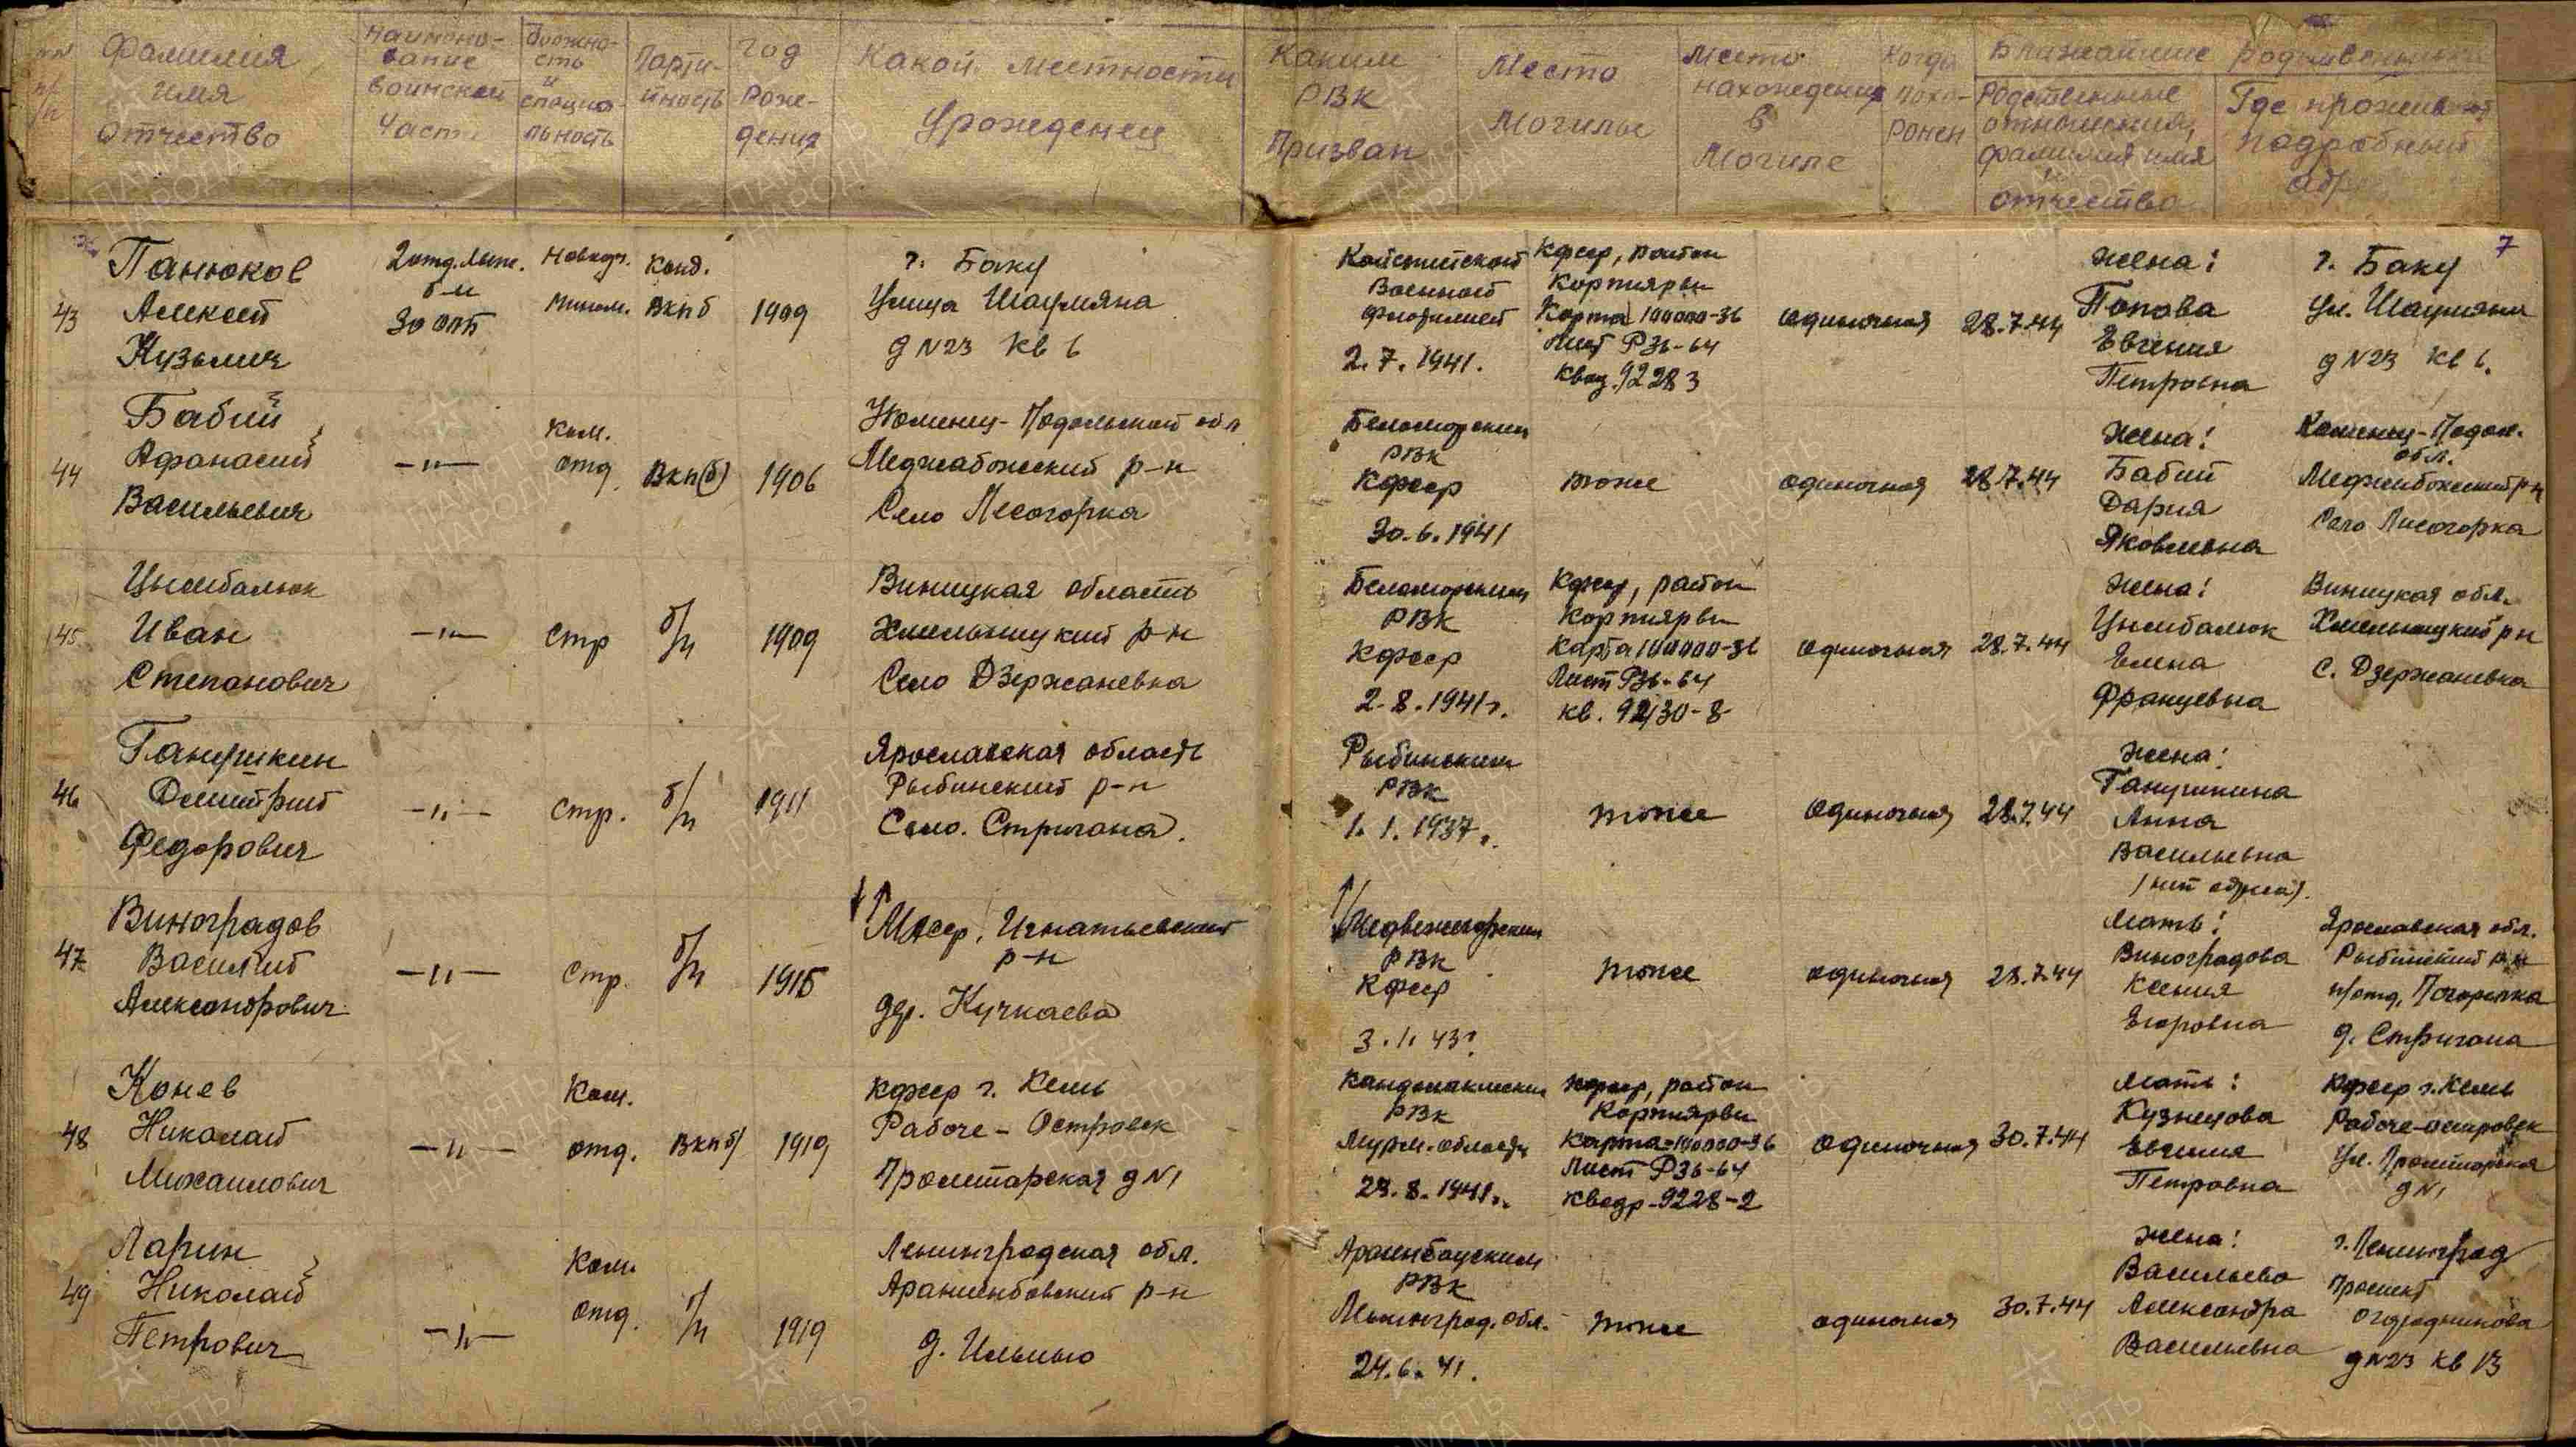 №№ п/п
Фамилия имя отчество
Наименование воинской части
Должность и специальность
Партийность
Год рождения
Какой местности уроженец
Каким РВК призван
Место могилы
Место нахождения в могиле
Когда похоронен
Ближайшие родственники
Родственные отношения, фамилия имя отчество
Где проживают подробный адр
7
43
Панюков
Алексей
Кузьмич
2 отд. лыж.
б-н
30 олп
Наводч.
Мином.
Канд.
ВКПб
1909
г. Баку
Улица Шаумяна
д N23 кв 6
Каспийской
Военной
флотилией
2.7.1941.
Кфсср, район
Корпиярви
Карта 100000-36
Лист Р36-64
Квад. 92283
одиночная
28.7.44
Жена:
Попова
Евгения
Петровна
г. Баку
ул. Шаумяна
д N23 кв 6.
44
Бабий
Афанасий
Васильевич
-"-
Ком.
отд.
ВКП(б)
1906
Каменец-Подольской обл
Меджибожский р-н
Село Лесогорка
Беломорским
РВК
Кфсср
30.6.1941
тоже
одиночная
28.7.44
Жена:
Бабий
Дария
Яковлевна
Каменец-Подол.
обл.
Меджибожский р-н
Село Лисогорка
45
Цымбалюк
Иван
Степанович
-"-
Стр
б/п
1909
Виницкая область
Хмельницкий р-н
Село Дзержановка
Беломорским
РВК
Кфсср
2.8.1941г.
Кфсср, район
Корпиярви
Карта 100000-36
Лист Р36-64
кв. 92/30-8
одиночная
28.7.44
Жена:
Цымбалюк
Елена
Францевна
Виницкая обл.
Хмельницкий р-н
с. Дзержановка
46
Ганушкин
Дмитрий
Федорович
-"-
Стр.
б/п
1911
Ярославская область
Рыбинский р-н
Село. Стригана.
Рыбинским
РВК
1.1.1937г.
тоже
одиночная
28.7.44
Жена:
Ганушкина
Анна
Васильевна
(нет адреса).
47
Виноградов
Василий
Александрович
-"-
Стр.
б/п
1915
↓↑
Мсср, Игнатьевский
р-н
дер. Кучкаева
Медвежегорским
РВК
Кфсср
3.1.43г.
тоже
одиночная
28.7.44
Мать:
Виноградова
Ксения
Егоровна
Ярославская обл.
Рыбинский р-н
п/отд, Погорелка
д. Стригана
48
Конев
Николай
Михаилович
-"-
Ком.
отд.
ВКПб)
1919
Кфсср г. Кемь
Рабоче-Островск
Пролетарская д N1
Кандалакшским
РВК
Мурм. область
29.8.1941г.
Кфсср, район
Корпиярви
Карта-100000-36
Лист Р36-64
Квадр-9228-2
одиночная
30.7.44
Мать:
Кузнецова
Евгения
Петровна
Кфсср г. Кемь
Рабоче-островск
Ул. Пролетарская
д N1
49
Ларин
Николай
Петрович
-"-
Ком.
отд.
б/п
1919
Ленинградская обл.
Араниенбовский р-н
д. Ильино
Араненбауским
РВК
Ленинград. обл.
24.6.41.
тоже
одиночная
30.7.44
Жена:
Васильева
Александра
Васильевна
г. Ленинград
Проспект
Огородникова
д N23 кв 13